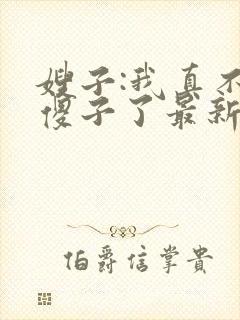 嫂子:我真不
傻子了最新
伯爵信掌贵